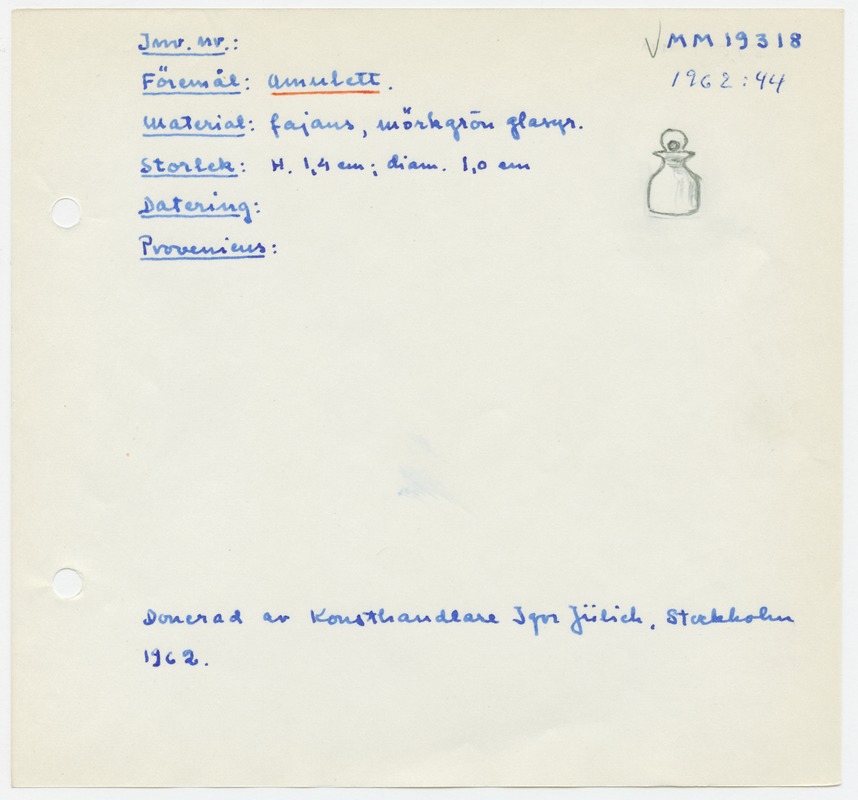 Inv. nr.: MM 19318
1962:44
Föremål: amulett.
Material: fajans, mörkgrön glasyr.
Storlek: H. 1,4 cm; diam. 1,0 cm
Datering:
Proveniens:
Donerad av Konsthandlare Igor Jülich, Stockholm
1962.